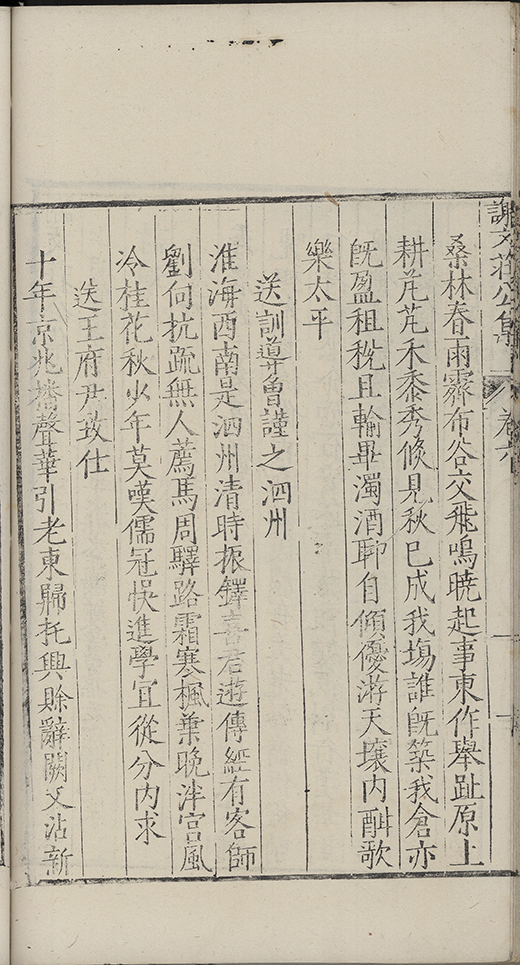 謝文莊公集 卷六
桑林春雨霽布谷交飛鳴曉起事東作舉趾原上
耕芃芃禾黍秀倏見秋巳成我塲誰既築我倉亦
既盈租稅且輸畢濁酒聊自傾優游天壤内酣歌
樂太平
送訓導曾謹之泗州
淮海西南是泗州清時振鐸喜君遊傳經有客師
劉向抗疏無人薦馬周驛路霜寒楓葉晚泮宮風
冷桂花秋少年莫嘆儒冠悞進學宜從分内求
送王府尹致仕
十年京兆播聲華引老東歸托興賒辭闕又沾新